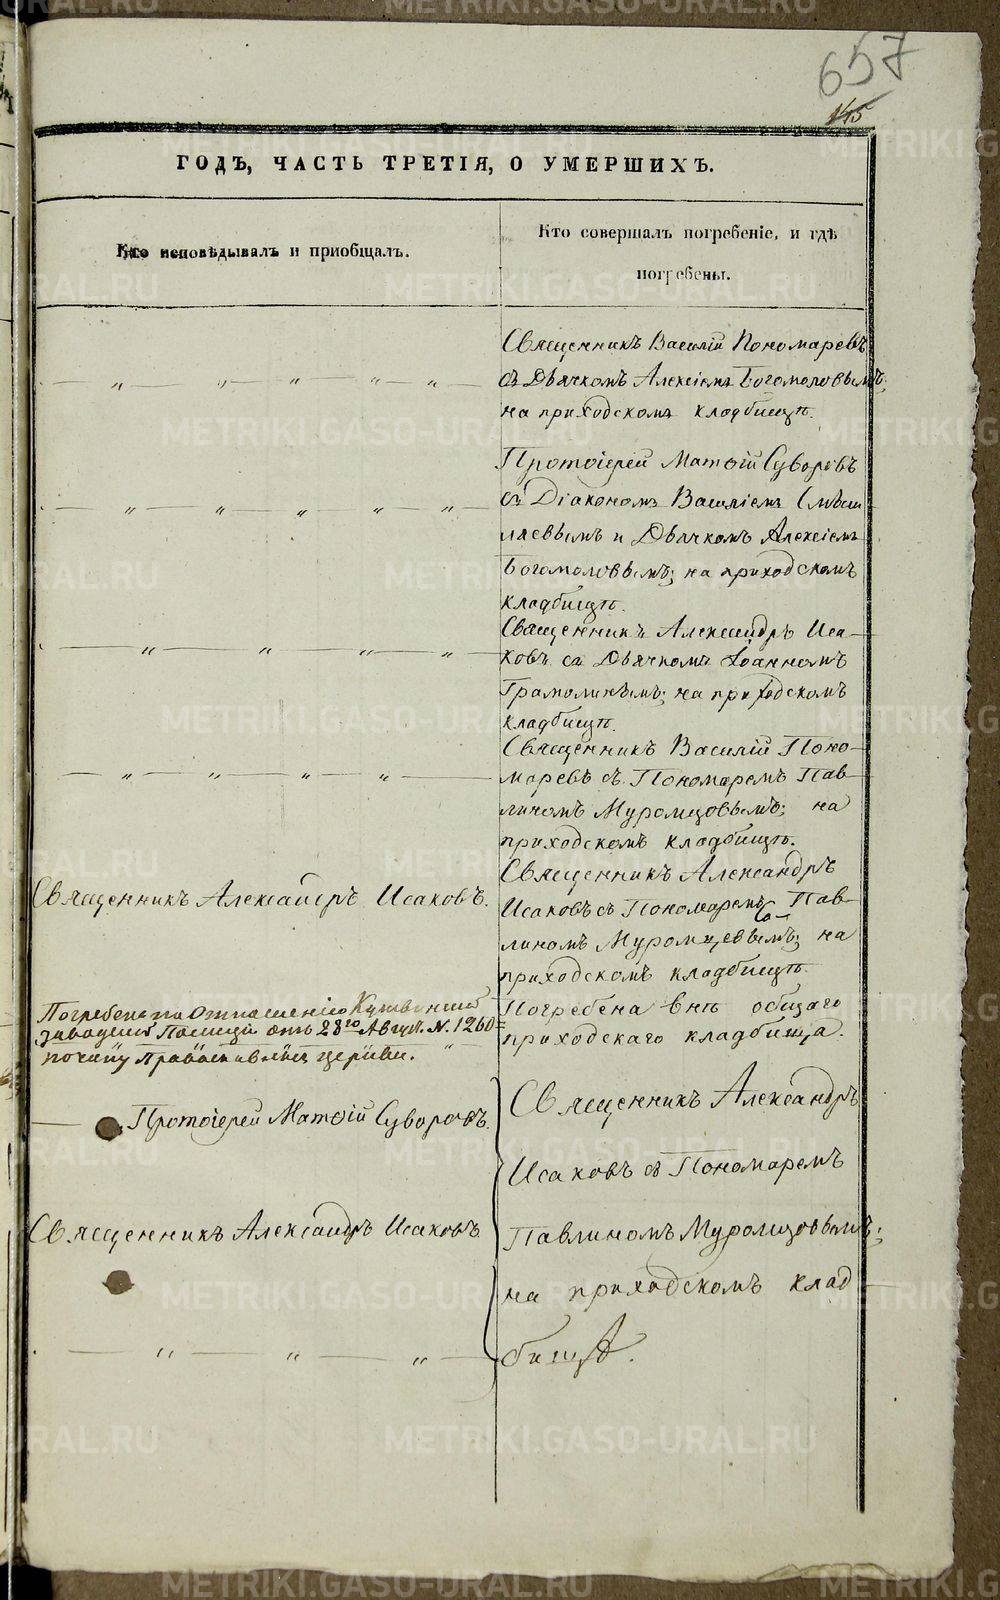 657
145
ГОДЪ, ЧАСТЬ ТРЕТІЯ, О УМЕРШИХЪ.
Кто исповѣдывалъ и приобщалъ.
Кто совершалъ погребеніе, и гдѣ
погребены.
Священникъ Василій Пономаревъ
съ Дьячкомъ Алексіемъ Богомоловымъ;
на приходскомъ кладбищѣ.
Протоіерей Матѳій Суворовъ
съ Діакономъ Василіемъ
и Дьячкомъ Алексіемъ
Богомоловымъ; на приходскомъ
кладбищѣ.
Священникъ Александръ Иса-
ковъ съ Дьячкомъ Іоанномъ
Грамолинымъ; на приходскомъ
кладбищѣ.
Священникъ Василій Поно-
маревъ съ Пономаремъ Пав-
линомъ Муромцовымъ; на
приходскомъ кладбищѣ.
Священникъ Александръ Исаковъ.
Священникъ Александръ
Исаковъ съ Пономаремъ Пав-
линомъ Муромцевымъ; на
приходскомъ кладбищѣ.
Погребена по отношенію
заводской Полиціи отъ 28го Авгус. N. 1260
по чину православной церкви.
Погребена внѣ общаго
приходскаго кладбища.
Протоіерей Матѳій Суворовъ.
Священникъ Александръ Исаковъ
Священникъ Александръ
Исаковъ съ Пономаремъ
Павлиномъ Муромцовымъ;
на приходскомъ клад
бищѣ.
METRIKI.GASO-URAL.RU